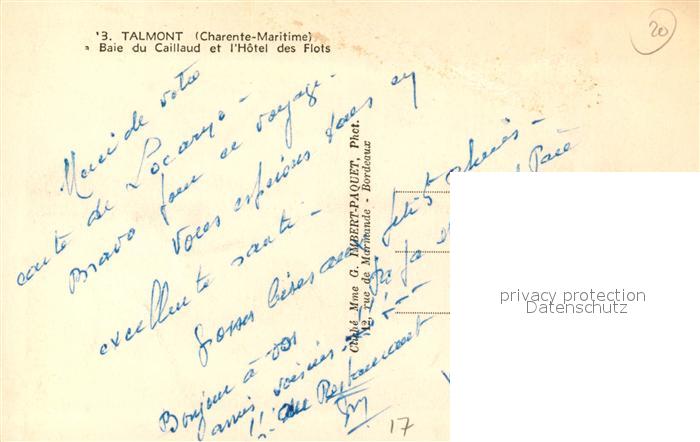 3. TALMONT (Charente-Maritime)
Baie du Caillaud et l'Hôtel des Flots
20
Merci de votre
carte de Locarno -
Bravo pour ce voyage.
Vous espérons tous en
excellente santé -
Grosses bises aux
Bonjour à vos
amis voisins
du Restaurant
Cliché Mme G. IMBERT-PAQUET, Phot.
12, rue de Marmande - Bordeaux
17
privacy protection
Datenschutz